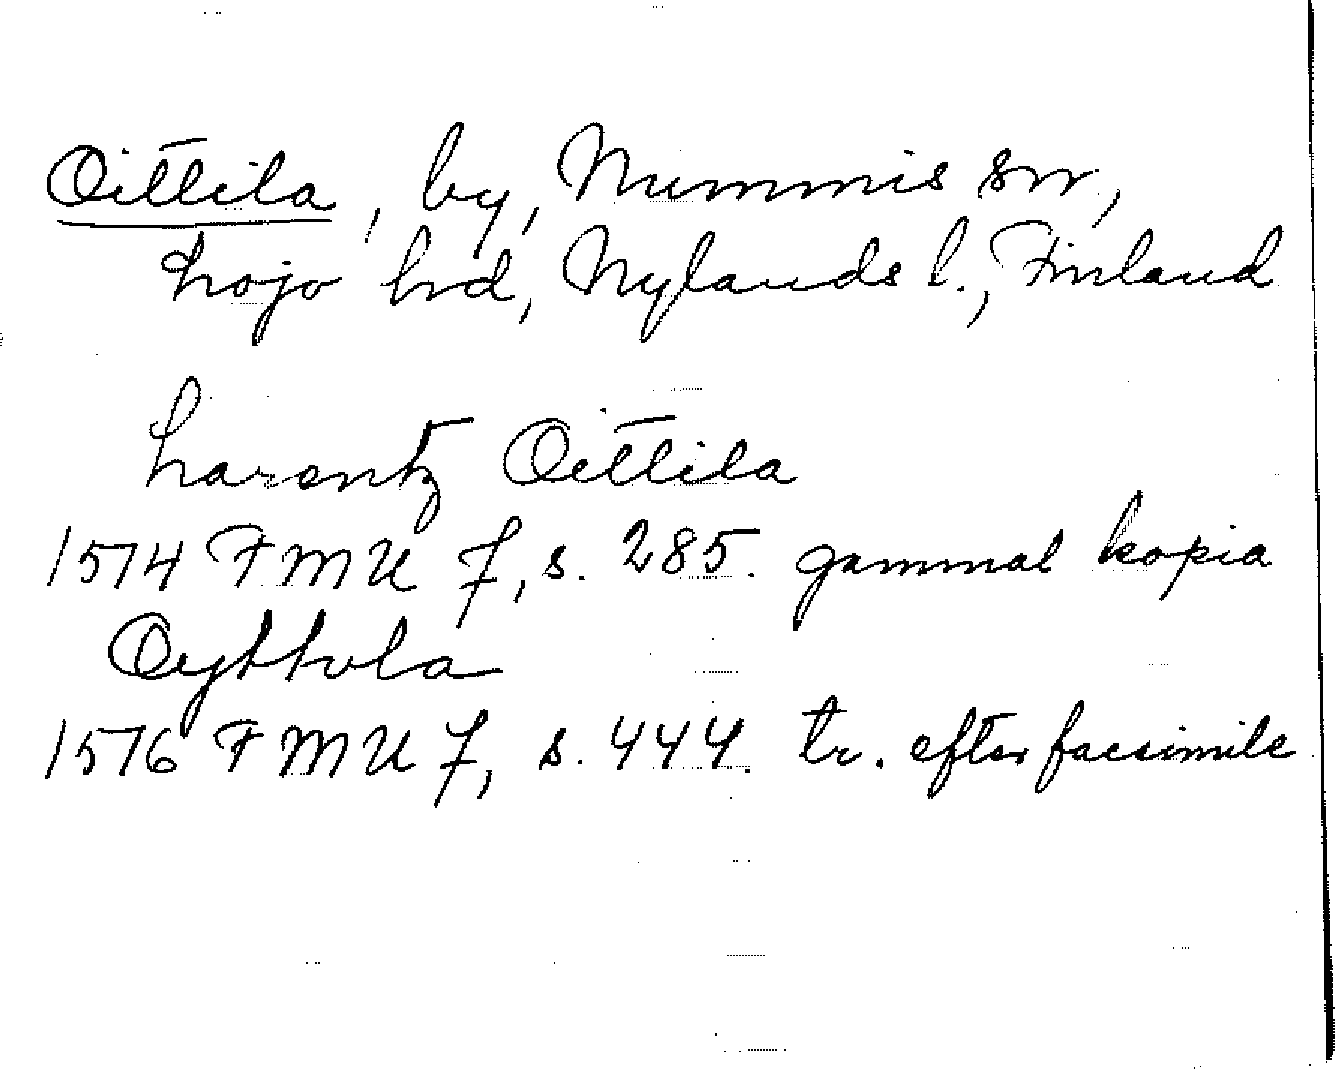 Oittila, by, Nummis sn,
Lojo hd, Nylands l., Finland
Larentz Oittila
1574 FMU 7, s. 285. gammal kopia
Oyttola
1576 FMU 7, s. 444. tr. efter facsimile